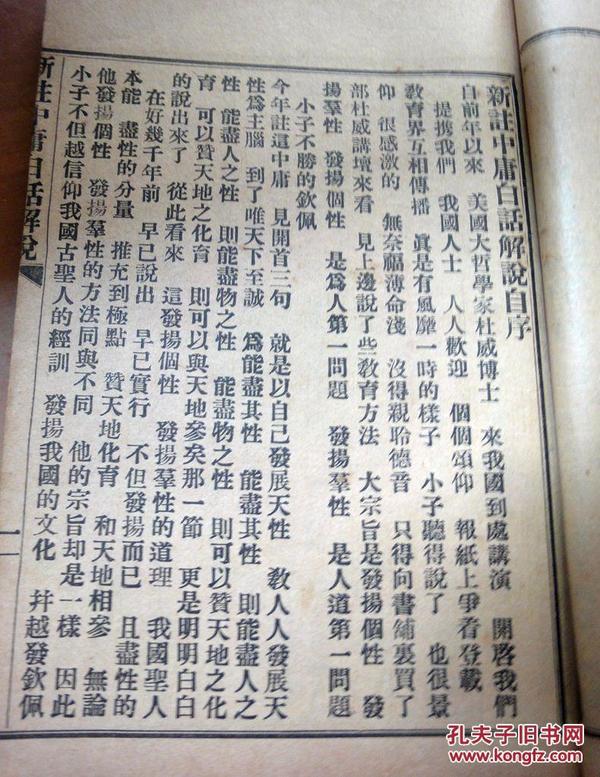 新註中庸白話解說自序
自前年以來 美國大哲學家杜威博士 來我國到處講演 開啓我們
提攜我們 我國人士 人人歡迎 個個頌仰 報紙上爭着登載
教育界互相傳播 眞是有風靡一時的樣子 小子聽得說了 也很景
仰 很感激的 無奈福薄命淺 沒得親聆德音 只得向書舖裏買了
部杜威講壇來看 見上邊說了些敎育方法 大宗旨是發揚個性 發
揚羣性 發揚個性 是爲人第一問題 發揚羣性 是人道第一問題
小子不勝的欽佩
今年註這中庸 見開首三句 就是以自己發展天性 敎人人發展天
性爲主腦 到了唯天下至誠 爲能盡其性 能盡其性 則能盡人之
性 能盡人之性 則能盡物之性 能盡物之性 則可以贊天地之化
育 可以贊天地之化育 則可以與天地參矣那一節 更是明明白白
的說出來了 從此看來 這發揚個性 發揚羣性的道理 我國聖人
在好幾千年前 早已說出 早已實行 不但發揚而已 且盡性的
本能 盡性的分量 推充到極點 贊天地化育 和天地相參 無論
他發揚個性 發揚羣性的方法同與不同 他的宗旨却是一樣 因此
小子不但越信仰我國古聖人的經訓 發揚我國的文化 幷越發欽佩
新註中庸白話解說
一
孔夫子旧书网
www.kongfz.com